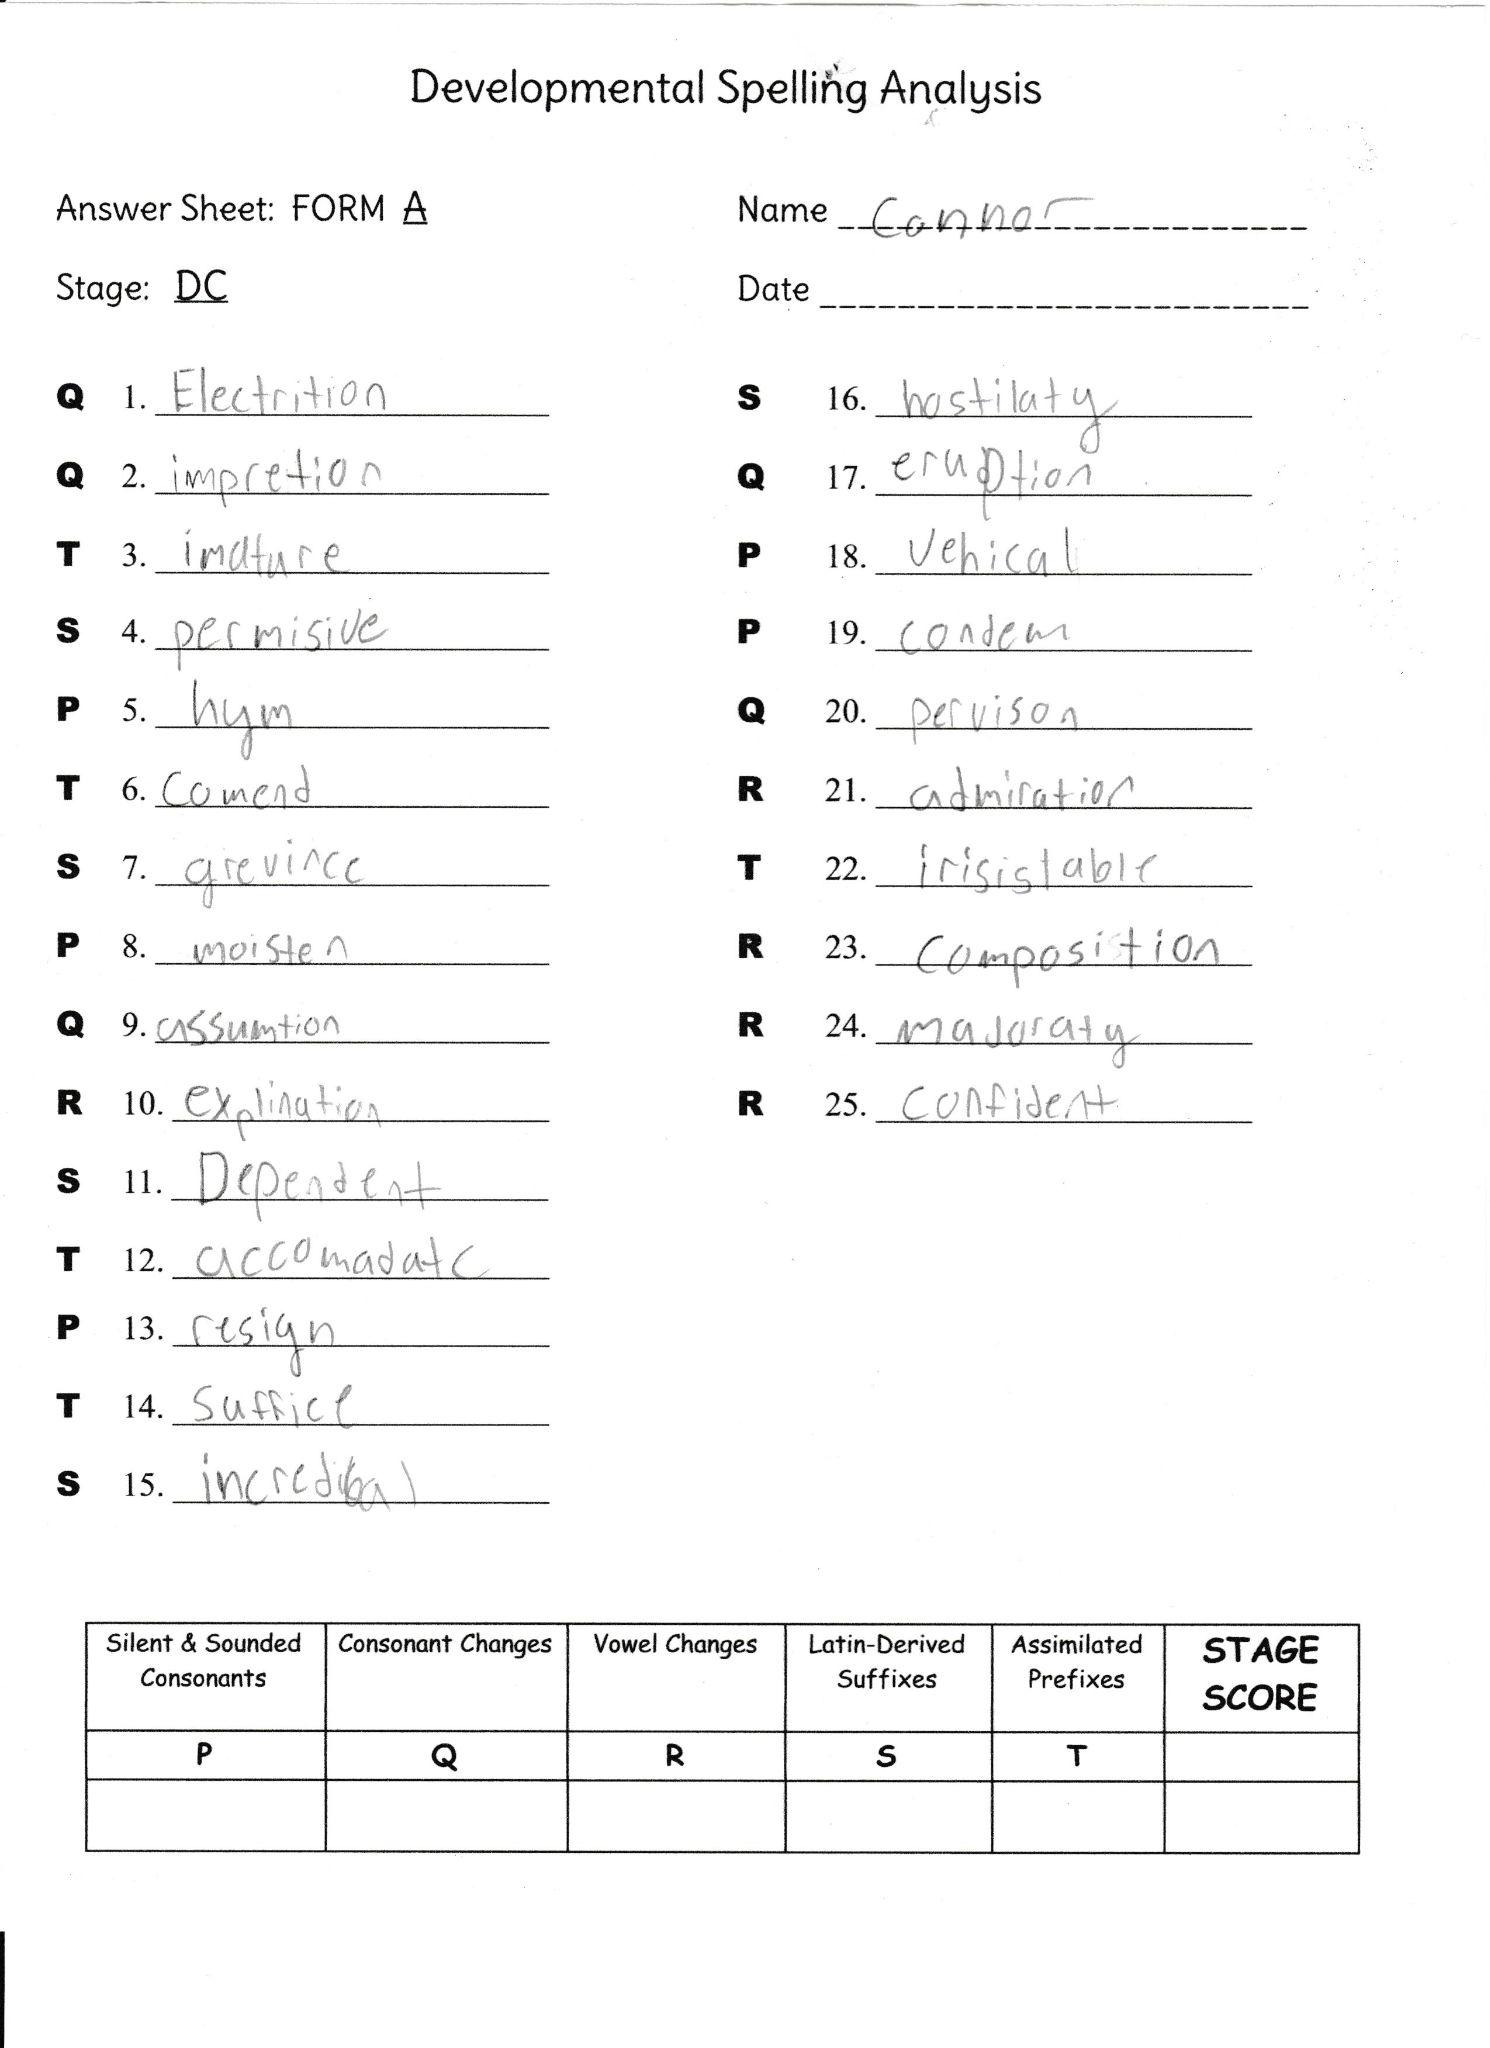 Developmental Spelling Analysis
Answer Sheet: FORM A
Name Connor
Stage: DC
Date
Q 1. Electrition
Q 2. impretion
T 3. imature
S 4. permisive
P 5. hym
T 6. Comend
S 7. grevince
P 8. moisten
Q 9. assumtion
R 10. explination
S 11. Dependent
T 12. accomadate
P 13. resign
T 14. suffice
S 15. incredibal
S 16. hostilaty
Q 17. eruption
P 18. Vehical
P 19. condem
Q 20. pervison
R 21. admiration
T 22. irisistable
R 23. Composition
R 24. majoraty
R 25. confident
Silent & Sounded Consonants Consonant Changes Vowel Changes Latin-Derived Suffixes Assimilated Prefixes STAGE SCORE
P Q R S T